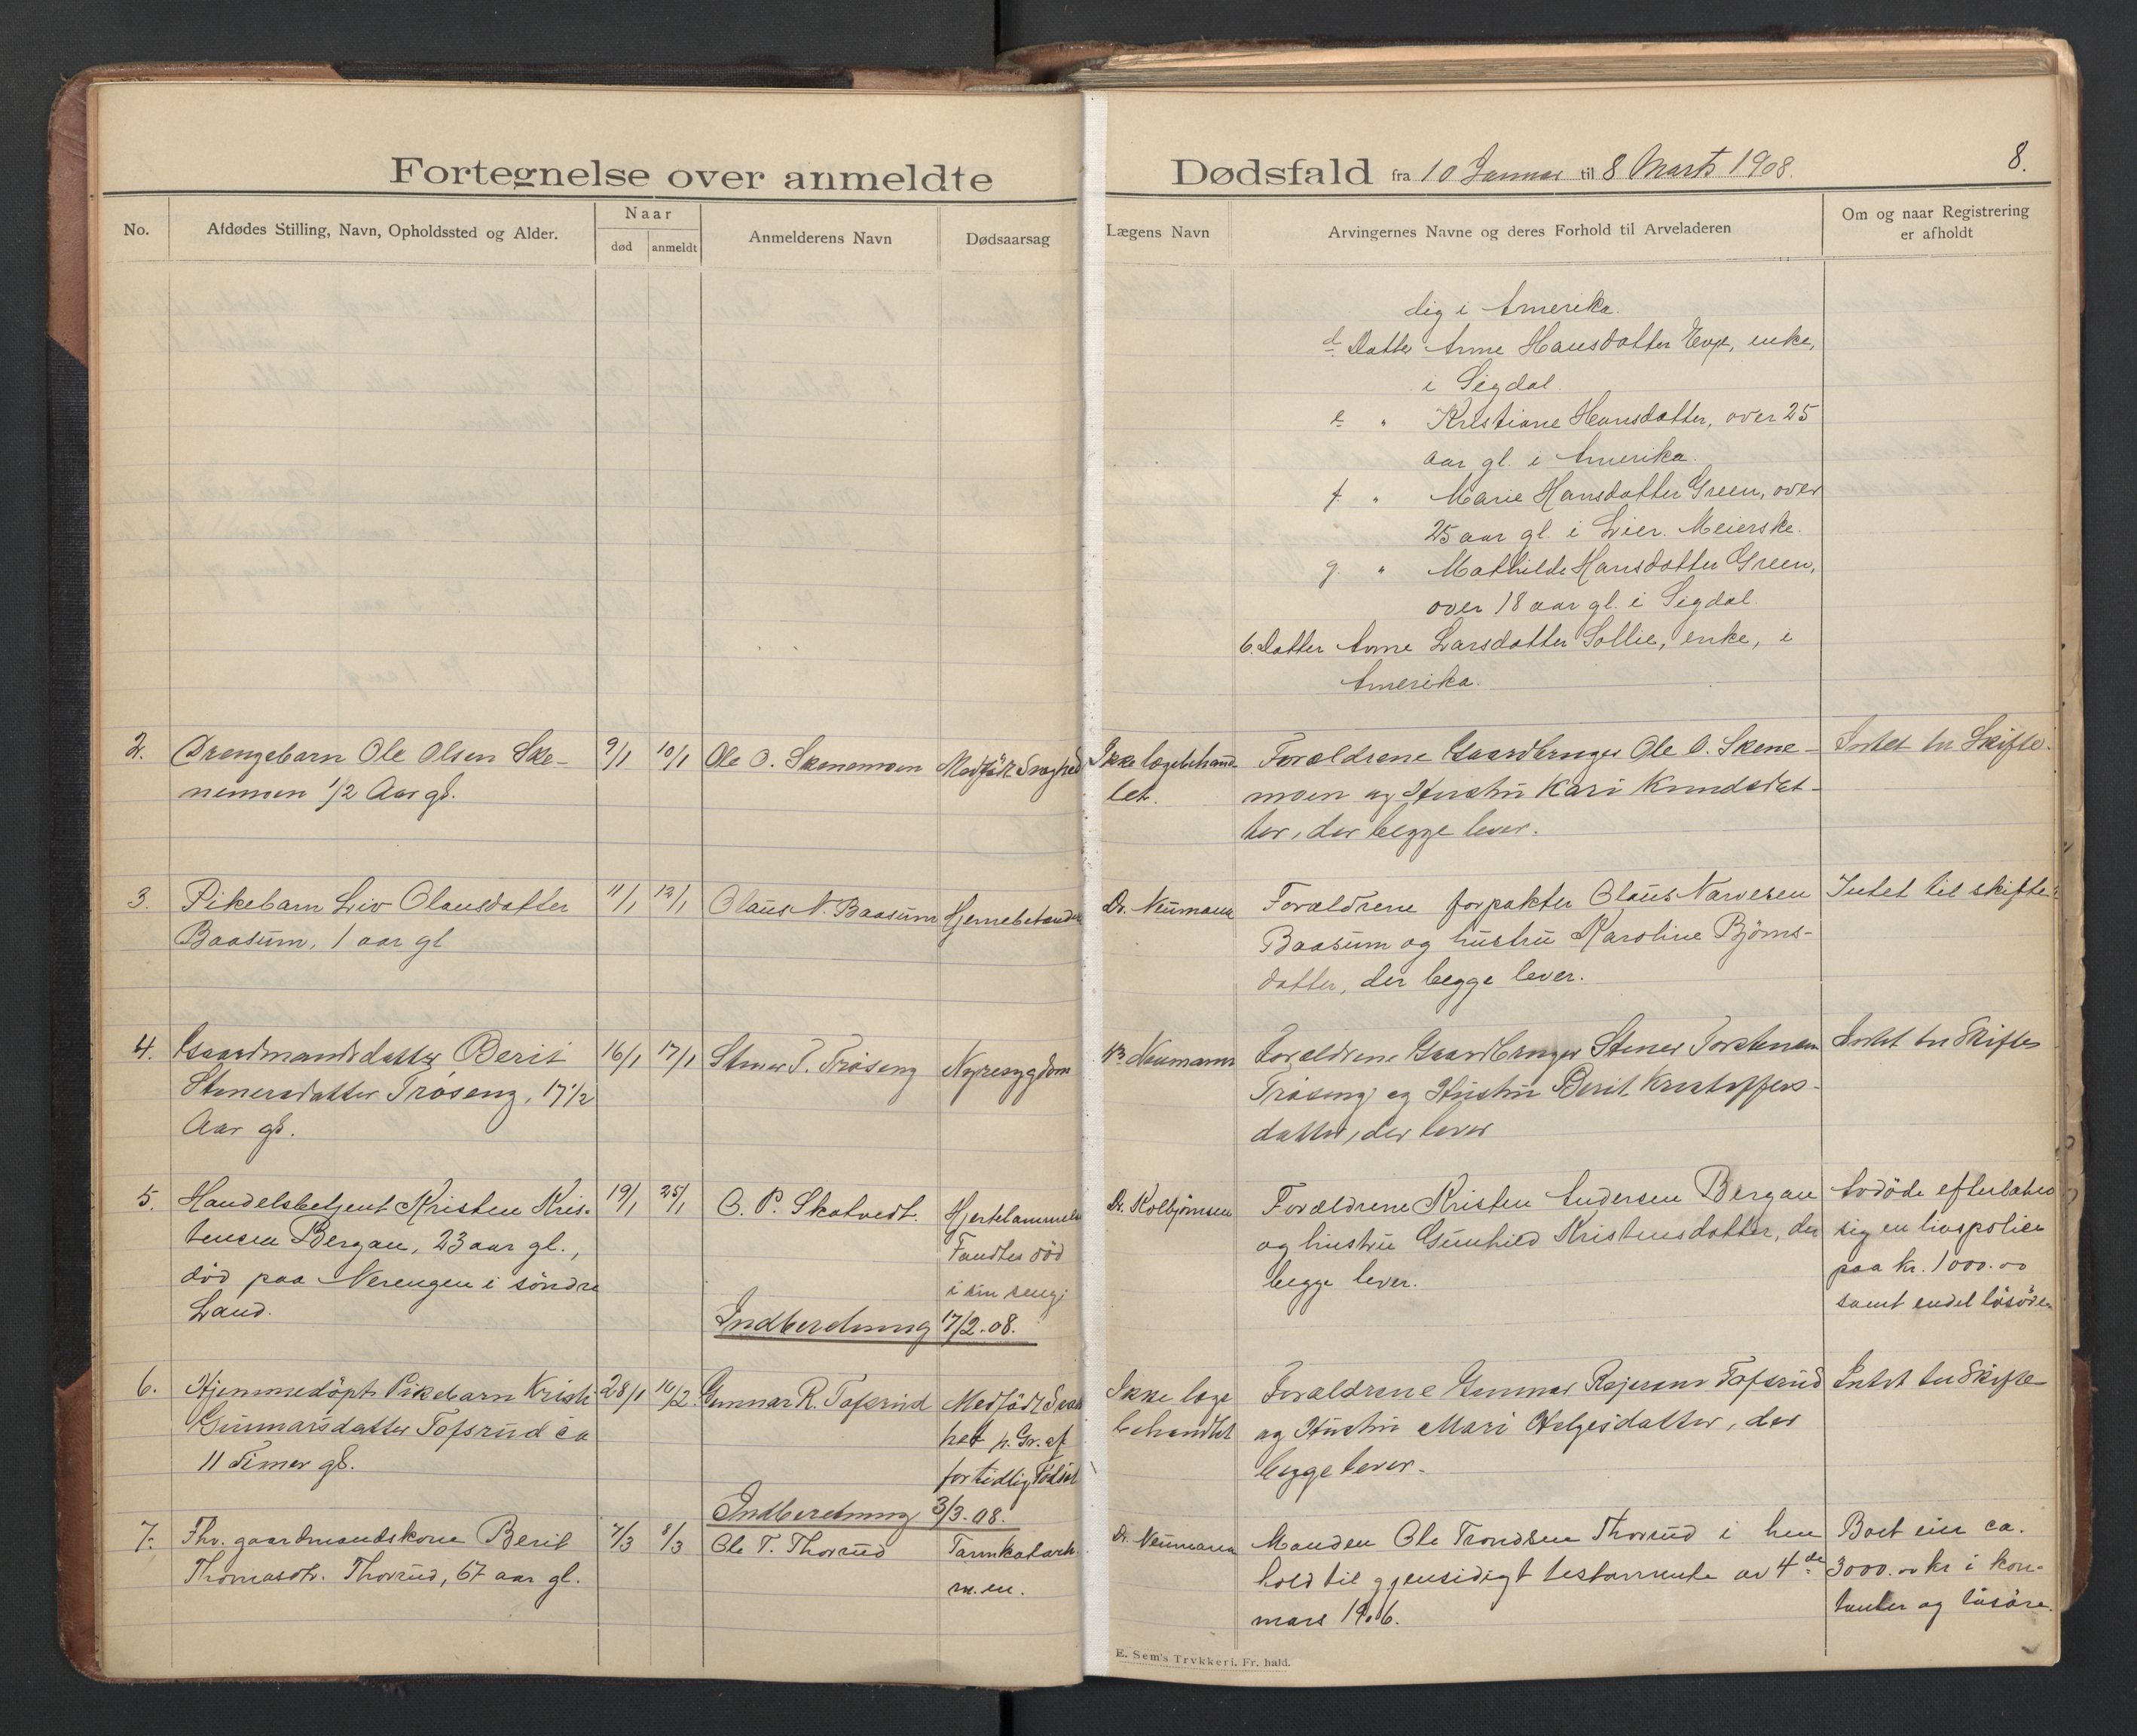 Fortegnelse over anmeldte
Dødsfald fra 10 Januar til 8 Marts 1908.
8.
No.
Afdødes Stilling, Navn, Opholdssted og Alder.
Naar
død
anmeldt
Anmelderens Navn
Dødsaarsag
Lægens Navn
Arvingernes Navne og deres Forhold til Arveladeren
Om og naar Registrering
er afholdt
dig i Amerika.
d. Datter Anne Hansdatter enke,
i Sigdal.
e. " Kristiane Hansdatter, over 25
aar gl. i Amerika.
f. " Marie Hansdatter Green, over
25 aar gl. i Lier. Meierske.
g. " Mathilde Hansdatter Green,
over 18 aar gl. i Sigdal.
6. Datter Anne Larsdatter Sollie, enke, i
Amerika.
2.
Drengebarn Ole Olsen Ske-
nemoen 1/2 Aar gl.
9/1
10/1
Ole O. Skenemoen
Medfødt Svaghed
Ikke lægebehand-
let.
Forældrene Gaardbruger Ole O. Skene-
moen og Hustru Kari Knudsdat-
ter, der begge lever.
Intet til Skifte.
3.
Pikebarn Liv Olausdatter
Baasum, 1 aar gl
11/1
12/1
Olaus N. Baasum
Dr. Neumann
Forældrene forpakter Olaus Narvesen
Baasum og hustru Karoline Björns-
datter, der begge lever.
Intet til skifte.
4.
Gaardmandsdatter Berit
Stenersdatter Trøseng, 17 1/2
Aar gl.
16/1
17/1
Stener T. Trøseng
Nyresygdom
Dr. Neumann
Forældrene Gaardbruger Stener Torstensen
Trøseng og Hustru Berit Kristoffers-
datter, der lever
Intet til Skifte
5.
Handelsbetjent Kristen Kris-
tensen Bergan, 23 aar gl.,
død paa Nerengen i söndre
Land.
19/1
25/1
O. P. Skatvedt.
Hjertelammelse
Fandtes död
i sin seng.
Indberetning 17/2-08.
Dr. Kolbjörnsen
Forældrene Kristen Andersen Bergan
og hustru Gunhild Kristensdatter, der
begge lever.
Avdöde efterlater
sig en livspolice
paa kr. 1000.00
samt endel lösöre
6.
Hjemmedöpt Pikebarn Kristi
Gunnarsdatter Tofsrud ca
11 Timer gl.
28/1
10/2.
Gunnar R. Tofsrud
Medfödt Svag
het p. Gr. af
for tidlig Födsel
Indberetning 3/3-08.
Ikke læge
behandlet
Forældrene Gunnar Tofsrud
og Hustru Mari Helgesdatter, der
begge lever.
Intet til Skifte
7.
Fhv. gaardmandskone Berit
Thomasdtr. Thorrud, 67 aar gl.
7/3
8/3
Ole T. Thorrud
Tarmkatarh
m.m.
Dr. Neumann
Manden Ole Trondsen Thorrud i hen
hold til gjensidigt testamente av 4de
mars 1906.
Boet eier ca.
3000.00 kr i kon-
tanter og lösöre.
E. Sem's Trykkeri, Fr. hald.